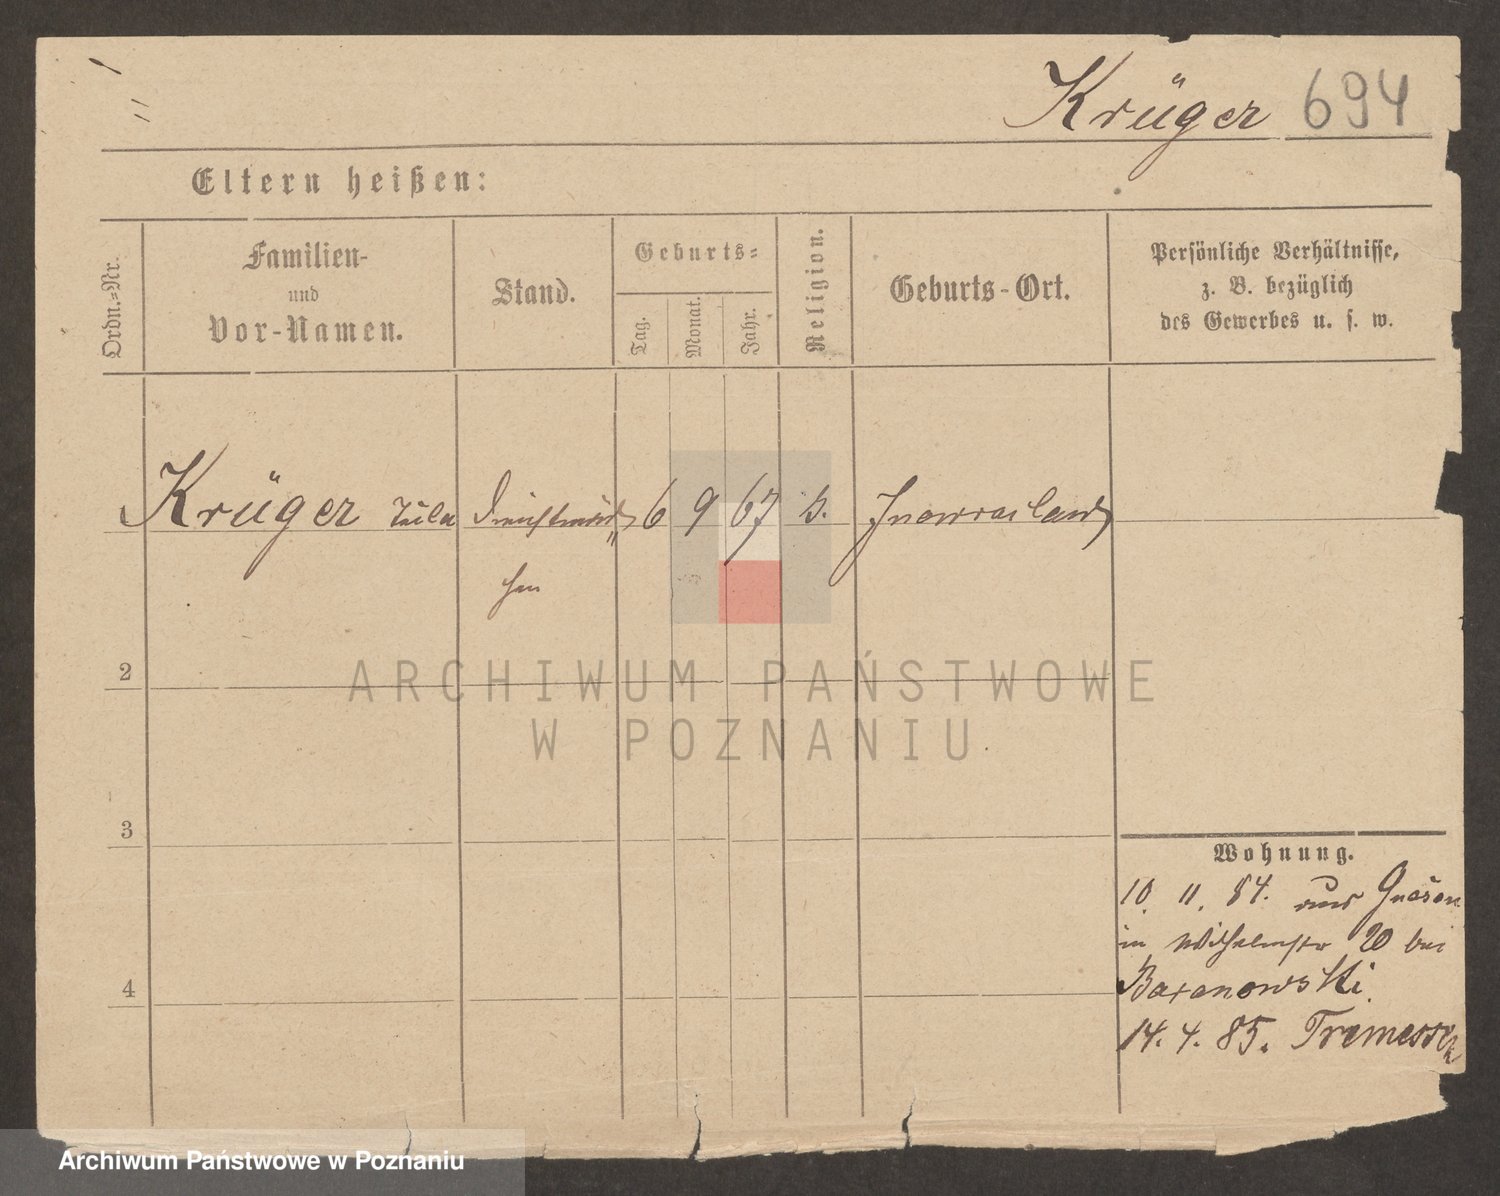 Krüger 694
Eltern heißen:
Ordn.=Nr.
Familien-
und
Vor-Namen.
Stand.
Geburts=
Tag.
Monat.
Jahr.
Religion.
Geburts-Ort.
Persönliche Verhältnisse,
z. B. bezüglich
des Gewerbes u. s. w.
Krüger Dienstmäd 6 9 67 Inowraclaw
chen
2
3
4
Wohnung.
10. 11. 84. aus Gnesen
in Wilhelmstr 20 bei
Baranowski
14. 4. 85. Tremessen
ARCHIWUM PAŃSTWOWE
W POZNANIU
Archiwum Państwowe w Poznaniu